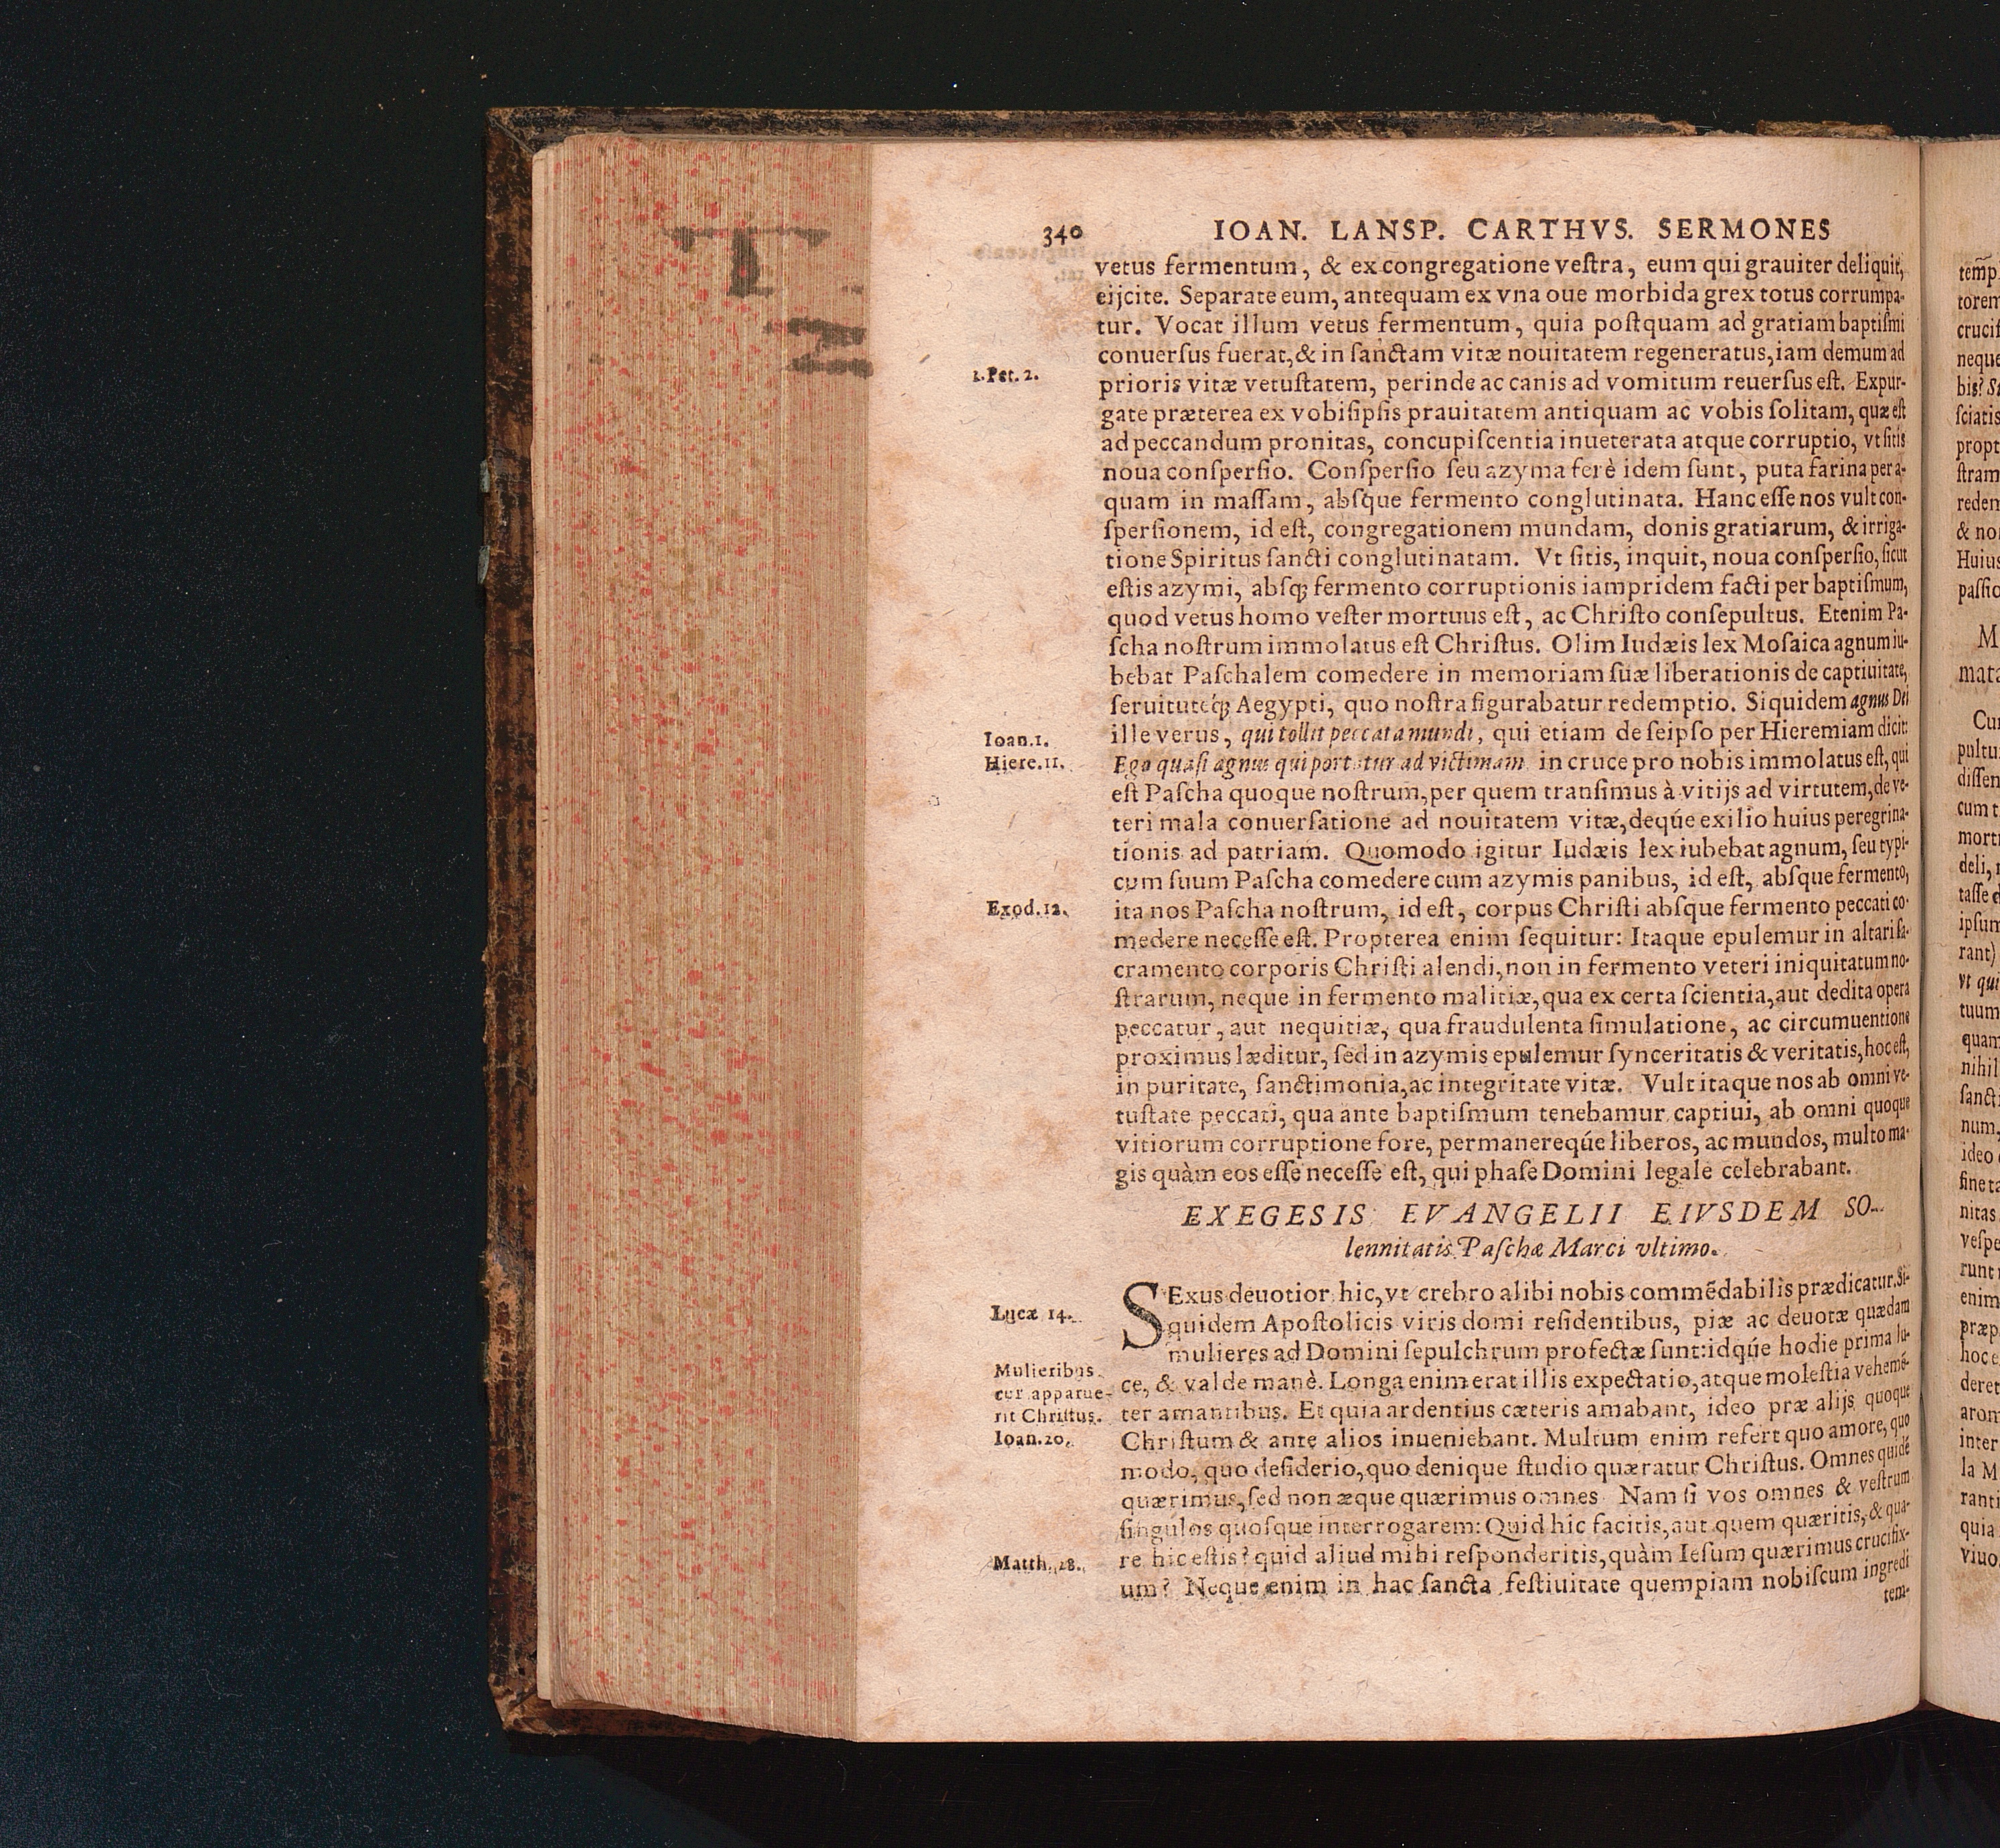 340 IOAN. LANSP. CARTHVS. SERMONES
vetus fermentum, & ex congregatione veſtra, eum qui grauiter deliquit,
eijcite. Separate eum, antequam ex vna oue morbida grex totus corrumpa-
tur. Vocat illum vetus fermentum, quia poſtquam ad gratiam baptiſmi
conuerſus fuerat,& in ſanctam vitæ nouitatem regeneratus,iam demum ad
1.Pet. 2.
prioris vitæ vetuſtatem, perinde ac canis ad vomitum reuerſus eſt. Expur-
gate præterea ex vobiſipſis prauitatem antiquam ac vobis ſolitam, quæ eſt
ad peccandum pronitas, concupiſcentia inueterata atque corruptio, vt ſitis
noua conſperſio. Conſperſio ſeu azyma ferè idem ſunt, puta farina per a-
quam in maſſam, abſque fermento conglutinata. Hanc eſſe nos vult con-
ſperſionem, id eſt, congregationem mundam, donis gratiarum, & irriga-
tione Spiritus ſancti conglutinatam. Vt ſitis, inquit, noua conſperſio, ſicut
eſtis azymi, abſq; fermento corruptionis iampridem facti per baptiſmum,
quod vetus homo veſter mortuus eſt, ac Chriſto conſepultus. Etenim Pa-
ſcha noſtrum immolatus eſt Chriſtus. Olim Iudæis lex Moſaica agnum iu-
bebat Paſchalem comedere in memoriam ſuæ liberationis de captiuitate,
ſeruitutéq; Aegypti, quo noſtra figurabatur redemptio. Siquidem agnus Dei
Ioan.1.
ille verus, qui tollit peccata mundi, qui etiam de ſeipſo per Hieremiam dicit:
Hiere.11.
Ego quaſi agnus qui portatur ad victimam in cruce pro nobis immolatus eſt, qui
eſt Paſcha quoque noſtrum,per quem tranſimus à vitijs ad virtutem,de ve-
teri mala conuerſatione ad nouitatem vitæ,deqúe exilio huius peregrina-
tionis ad patriam. Quomodo igitur Iudæis lex iubebat agnum, ſeu typi-
cum ſuum Paſcha comedere cum azymis panibus, id eſt, abſque fermento,
Exod.12.
ita nos Paſcha noſtrum, id eſt, corpus Chriſti abſque fermento peccati co-
medere neceſſe eſt. Propterea enim ſequitur: Itaque epulemur in altari ſa-
cramento corporis Chriſti alendi,non in fermento veteri iniquitatum no-
ſtrarum, neque in fermento malitiæ,qua ex certa ſcientia,aut dedita opera
peccatur, aut nequitiæ, qua fraudulenta ſimulatione, ac circumuentione
proximus læditur, ſed in azymis epulemur ſynceritatis & veritatis,hoc eſt,
in puritate, ſanctimonia,ac integritate vitæ. Vult itaque nos ab omni ve-
tuſtate peccati, qua ante baptiſmum tenebamur captiui, ab omni quoque
vitiorum corruptione fore, permanereqúe liberos, ac mundos, multo ma-
gis quàm eos eſſe neceſſe eſt, qui phaſe Domini legale celebrabant.
EXEGESIS EVANGELII EIVSDEM SO-
lennitatis Paſchæ Marci vltimo.
SExus deuotior hic,vt crebro alibi nobis commẽdabilis prædicatur. Si-
Lucæ 14.
quidem Apoſtolicis viris domi reſidentibus, piæ ac deuotæ quædam
mulieres ad Domini ſepulchrum profectæ ſunt:idqúe hodie prima lu-
Mulieribus
cur apparue-
rit Chriſtus.
ce, & valde manè. Longa enim erat illis expectatio,atque moleſtia vehemẽ-
ter amantibus. Et quia ardentius cæteris amabant, ideo præ alijs quoque
Ioan.20.
Chriſtum & ante alios inueniebant. Multum enim refert quo amore, quo
modo, quo deſiderio,quo denique ſtudio quæratur Chriſtus. Omnes quidẽ
quærimus,ſed non æque quærimus omnes Nam ſi vos omnes & veſtrum
ſingulos quoſque interrogarem: Quid hic facitis, aut quem quæritis, & qua-
Matth.28.
re hic eſtis? quid aliud mihi reſponderitis,quàm Ieſum quærimus crucifix-
um? Neque enim in hac ſancta feſtiuitate quempiam nobiſcum ingredi
tem-